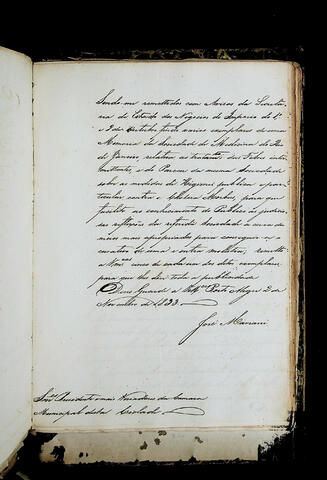 Sendo-me remettidos com Avisos da Secreta-
ria de Estado dos Negocios do Imperio de 1º
e 9 de Outubro findo varios exemplares de uma
Memoria da Sociedade de Medicina do Rio
de Janeiro relativa ao tratamento das Febres inter-
mittentes, e do Parecer da mesma Sociedade
sobre as medidas de Hygiene publica e par-
ticular contra o Cholera Morbus, para que
facilite ao conhecimento do Publico as judicio-
sas reflexões da referida Sociedade á cerca dos
meios mais apropriados para conseguir o
curativo de uma e outra molestia; remetto
a Vmces cinco de cada um dos ditos exemplares
para que lhe dem toda a publicidade
Deos Guarde a Vmces Porto Alegre 2 de
Novembro de 1833.
José Mariani
Snres Presidente e mais Vereadores da Camara
Municipal desta Cidade